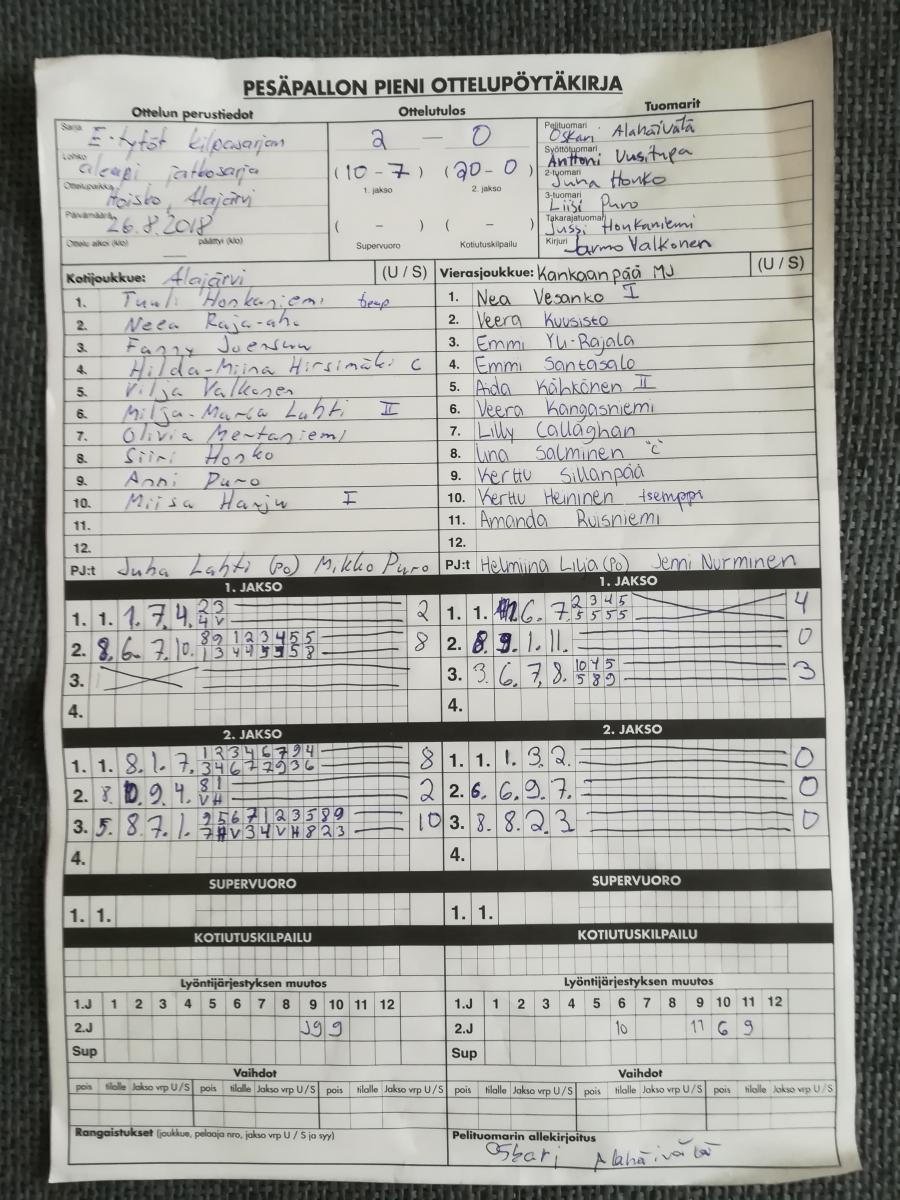 PESÄPALLON PIENI OTTELUPÖYTÄKIRJA
Ottelun perustiedot
Ottelutulos
Tuomarit
Sarja E-tytöt kilpasarjan
Lohko alempi jatkosarja
Ottelupaikka Hoisko, Alajärvi
Päivämäärä 26.8.2018
Ottelu alkoi (klo) päättyi (klo)
2 — 0
(10 - 7) (20 - 0)
1. jakso 2. jakso
( - ) ( - )
Supervuoro Kotiutuskilpailu
Pelituomari Oskari Alahäivälä
Syöttötuomari Anttoni Uusitupa
2-tuomari Juha Honko
3-tuomari Liisi Puro
Takarajatuomari Jussi Honkaniemi
Kirjuri Jarmo Valkonen
Kotijoukkue: Alajärvi (U / S)
1. Tuuli Honkaniemi
2. Neea Raja-aho
3. Fanny Joensuu
4. Hilda-Miina Hirsimäki C
5. Vilja Valkonen
6. Milja-Maria Lahti II
7. Olivia Mertaniemi
8. Siiri Honko
9. Anni Puro
10. Miisa Harju I
11.
12.
PJ:t Juha Lahti (PO) Mikko Puro
Vierasjoukkue: Kankaanpää MJ (U / S)
1. Nea Vesanko I
2. Veera Kuusisto
3. Emmi Yli-Rajala
4. Emmi Santasalo
5. Aida Kähkönen II
6. Veera Kangasniemi
7. Lilly Callaghan
8. Iina Salminen "C"
9. Kerttu Sillanpää
10. Kerttu Heininen tsemppi
11. Amanda Ruisniemi
12.
PJ:t Helmiina Lilja (PO) Jemi Nurminen
1. JAKSO
1. 1. 1. 7. 4. 2 3 2
4 V
2. 8. 6. 7. 10. 8 9 1 2 3 4 5 5 8
1 3 4 4 5 5 5 8
3.
4.
1. JAKSO
1. 1. 6. 7. 2 3 4 5 4
5 5 5 5
2. 8. 9. 1. 11. 0
3. 3. 6. 7. 8. 10 4 5 3
5 8 9
4.
2. JAKSO
1. 1. 8. 1. 7. 1 2 3 4 6 7 9 4 8
3 4 6 7 7 9 3 6
2. 8. 9. 4. 8 1 2
V H
3. 5. 8. 7. 1. 9 5 6 7 1 2 3 5 8 9 10
7 H V 3 4 V H 8 2 3
4.
2. JAKSO
1. 1. 1. 3. 2. 0
2. 6. 6. 9. 7. 0
3. 8. 8. 2. 3. 0
4.
SUPERVUORO
1. 1.
SUPERVUORO
1. 1.
KOTIUTUSKILPAILU
KOTIUTUSKILPAILU
Lyöntijärjestyksen muutos
1.J 1 2 3 4 5 6 7 8 9 10 11 12
2.J 9
Sup
Lyöntijärjestyksen muutos
1.J 1 2 3 4 5 6 7 8 9 10 11 12
2.J 10 11 6 9
Sup
Vaihdot
pois tilalle Jakso vrp U / S pois tilalle Jakso vrp U / S pois tilalle Jakso vrp U / S
Vaihdot
pois tilalle Jakso vrp U / S pois tilalle Jakso vrp U / S pois tilalle Jakso vrp U / S
Rangaistukset (joukkue, pelaaja nro, jakso vrp U / S ja syy)
Pelituomarin allekirjoitus
Oskari Alahäivälä